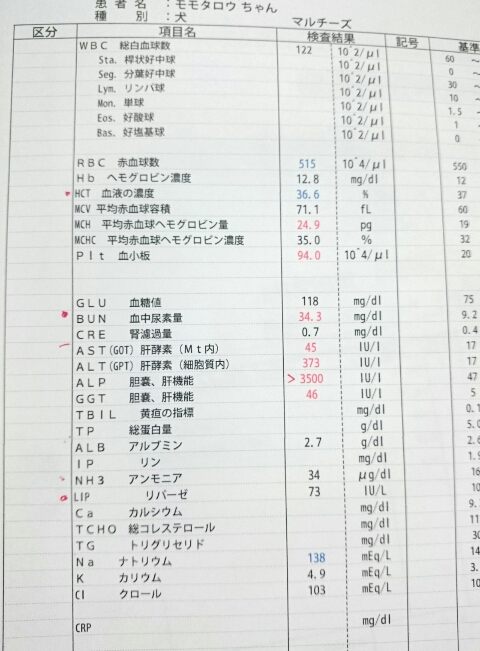 患者名：モモタロウ ちゃん
種別：犬 マルチーズ
区分 項目名 検査結果 記号 基準
WBC 総白血球数 122 10^2/μl 60 ～
Sta. 桿状好中球 10^2/μl 0 ～
Seg. 分葉好中球 10^2/μl 30 ～
Lym. リンパ球 10^2/μl 10 ～
Mon. 単球 10^2/μl 1.5
Eos. 好酸球 10^2/μl 1
Bas. 好塩基球 10^2/μl 0
RBC 赤血球数 515 10^4/μl 550
Hb ヘモグロビン濃度 12.8 mg/dl 12
HCT 血液の濃度 36.6 % 37
MCV 平均赤血球容積 71.1 fL 60
MCH 平均赤血球ヘモグロビン量 24.9 pg 19
MCHC 平均赤血球ヘモグロビン濃度 35.0 % 32
Plt 血小板 94.0 10^4/μl 20
GLU 血糖値 118 mg/dl 75
BUN 血中尿素量 34.3 mg/dl 9.2
CRE 腎濾過量 0.7 mg/dl 0.4
AST(GOT) 肝酵素（Mt内） 45 IU/l 17
ALT(GPT) 肝酵素（細胞質内） 373 IU/l 17
ALP 胆嚢、肝機能 >3500 IU/l 47
GGT 胆嚢、肝機能 46 IU/l 5
TBIL 黄疸の指標 mg/dl 0.1
TP 総蛋白量 g/dl 5.0
ALB アルブミン 2.7 g/dl 2.6
IP リン mg/dl 1.9
NH3 アンモニア 34 μg/dl 16
LIP リパーゼ 73 IU/L 10
Ca カルシウム mg/dl 9.
TCHO 総コレステロール mg/dl 11
TG トリグリセリド mg/dl 30
Na ナトリウム 138 mEq/L 14
K カリウム 4.9 mEq/L 3.
Cl クロール 103 mEq/L 10
CRP mg/dl